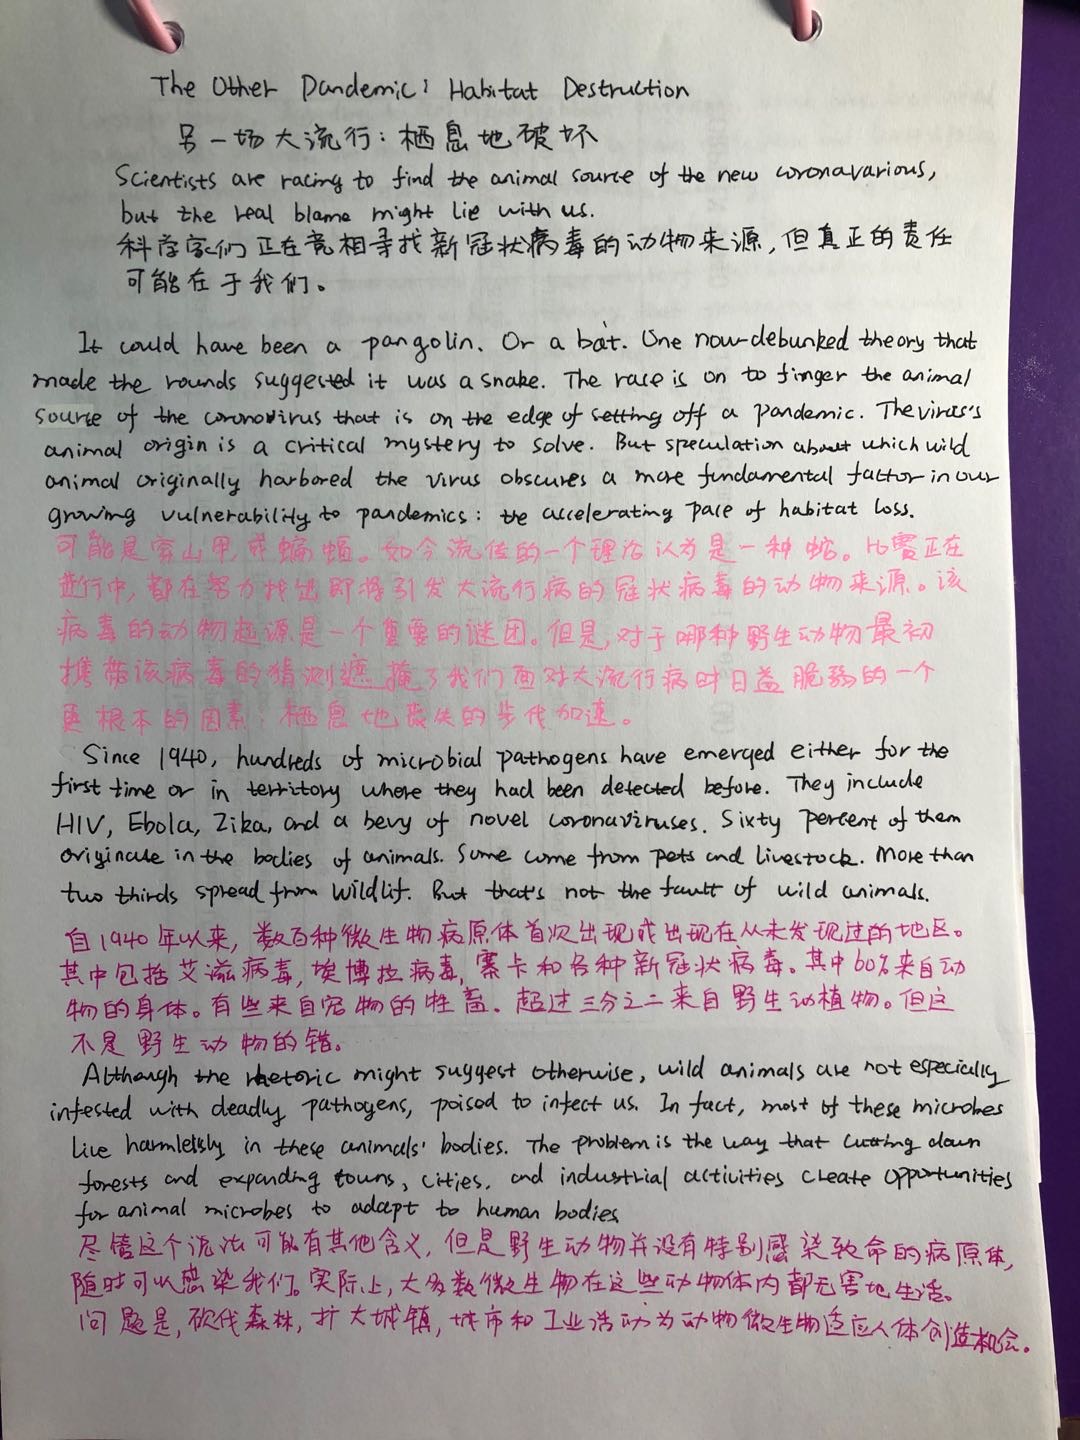 The Other Pandemic: Habitat Destruction
另一场大流行:栖息地破坏
Scientists are racing to find the animal source of the new coronavarious,
but the real blame might lie with us.
科学家们正在竞相寻找新冠状病毒的动物来源,但真正的责任
可能在于我们。
It could have been a pangolin. Or a bat. One now-debunked theory that
made the rounds suggested it was a snake. The race is on to finger the animal
source of the coronovirus that is on the edge of setting off a pandemic. The virus's
animal origin is a critical mystery to solve. But speculation about which wild
animal originally harbored the virus obscures a more fundamental factor in our
growing vulnerability to pandemics: the accelerating pace of habitat loss.
可能是穿山甲,或蝙蝠。如今流传的一个理论认为是一种蛇。比赛正在
进行中,都在努力找出即将引发大流行病的冠状病毒的动物来源。该
病毒的动物起源是一个重要的谜团。但是,对于哪种野生动物最初
携带该病毒的猜测遮掩了我们面对大流行病时日益脆弱的一个
更根本的因素:栖息地丧失的步伐加速。
Since 1940, hundreds of microbial pathogens have emerged either for the
first time or in territory where they had been detected before. They include
HIV, Ebola, Zika, and a bevy of novel coronaviruses. Sixty percent of them
originate in the bodies of animals. Some come from pets and livestock. More than
two thirds spread from wildlif. But that's not the fault of wild animals.
自1940年以来,数百种微生物病原体首次出现或出现在从未发现过的地区。
其中包括艾滋病毒,埃博拉病毒,寨卡和各种新冠状病毒。其中60%来自动
物的身体。有些来自宠物的牲畜。超过三分之二来自野生动植物。但这
不是野生动物的错。
Although the rhetoric might suggest otherwise, wild animals are not especially
infested with deadly pathogens, poised to infect us. In fact, most of these microbes
live harmlessly in these animals' bodies. The problem is the way that cutting down
forests and expanding towns, cities, and industrial activities create opportunities
for animal microbes to adapt to human bodies
尽管这个说法可能有其他含义,但是野生动物并没有特别感染致命的病原体,
随时可以感染我们。实际上,大多数微生物在这些动物体内都无害地生活。
问题是,砍伐森林,扩大城镇,城市和工业活动为动物微生物适应人体创造机会。